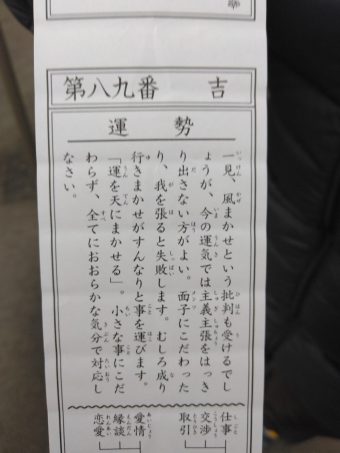 第八九番　吉
運勢
一見、風まかせという批判も受けるでし
ょうが、今の運気では主義主張をはっき
り出さない方がよい。面子にこだわった
り、我を張ると失敗します。むしろ成り
行きまかせがすんなりと事を運びます。
「運を天にまかせる」。小さな事にこだ
わらず、全てにおおらかな気分で対応し
なさい。
仕事
交渉
取引
愛情
縁談
恋愛